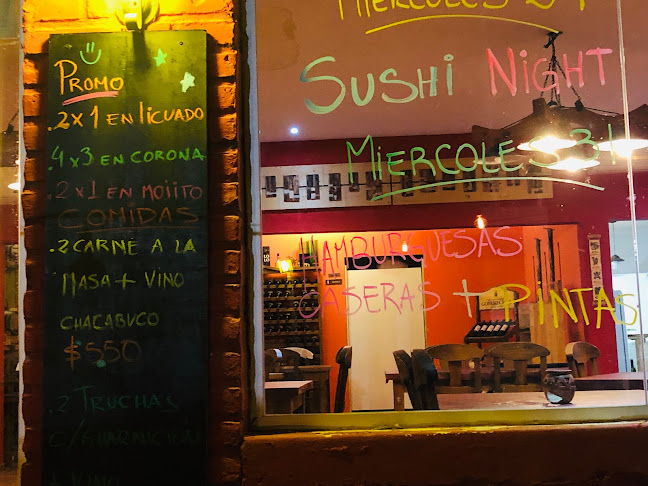 Promo
.2x1 en licuado
.4x3 en corona
.2x1 en mojito
COMIDAS
.2 CARNE A LA
MASA + VINO
CHACABUCO
$550
.2 TRUCHAS
C/GUARNICION
MIERCOLES 24
SUSHI NIGHT
MIERCOLES 31
HAMBURGUESAS
CASERAS + PINTAS